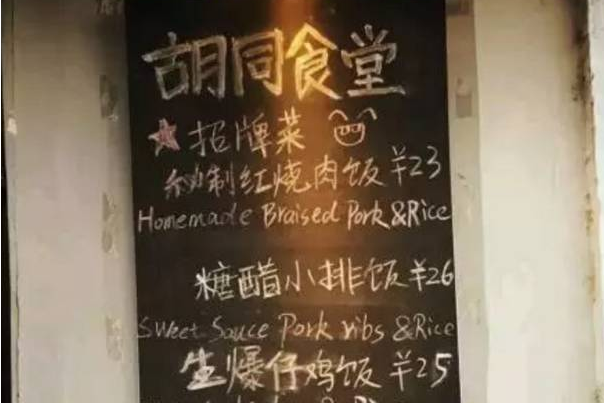 胡同食堂
招牌菜
秘制红烧肉饭 ¥23
Homemade Braised Pork &Rice
糖醋小排饭 ¥26
Sweet Sauce Pork ribs &Rice
生爆仔鸡饭 ¥25